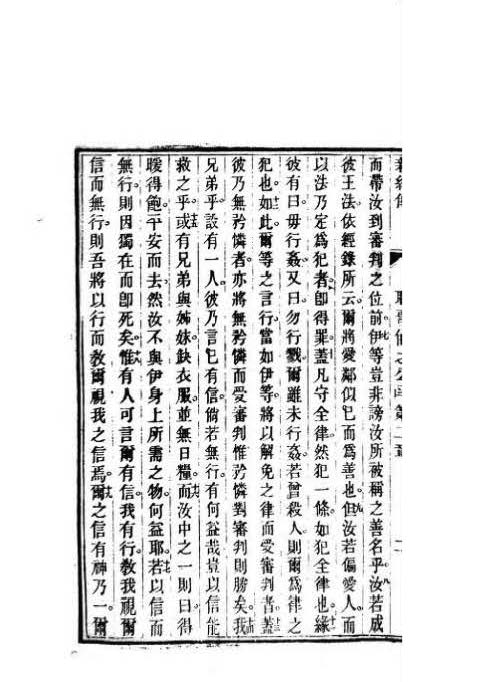 而帶汝到審判之位前伊等豈非謗汝所被稱之善名乎汝若成
彼王法依經錄所云爾將愛鄰似己而為善也但汝若偏愛人而
以法乃定為犯者卽得罪蓋凡守全律然犯一條如犯全律也緣
彼有曰毋行姦又曰勿行戮爾雖未行姦若曾殺人則爾為律之
犯也如此爾等之言行當如伊等將以解免之律而受審判者蓋
彼乃無矜憐者亦將無矜憐而受審判惟矜憐對審判則勝矣我
兄弟乎設有一人彼乃言已有信倘若無行有何益哉豈以信能
救之乎或有兄弟與姊妹缺衣服並無日糧而汝中之一則曰得
暖得飽平安而去然汝不與伊身上所需之物何益耶若以信而
無行則因獨在而卽死矣惟有人可言爾有信我有行敎我視爾
信而無行則吾將以行而敎爾視我之信焉爾之信有神乃一爾